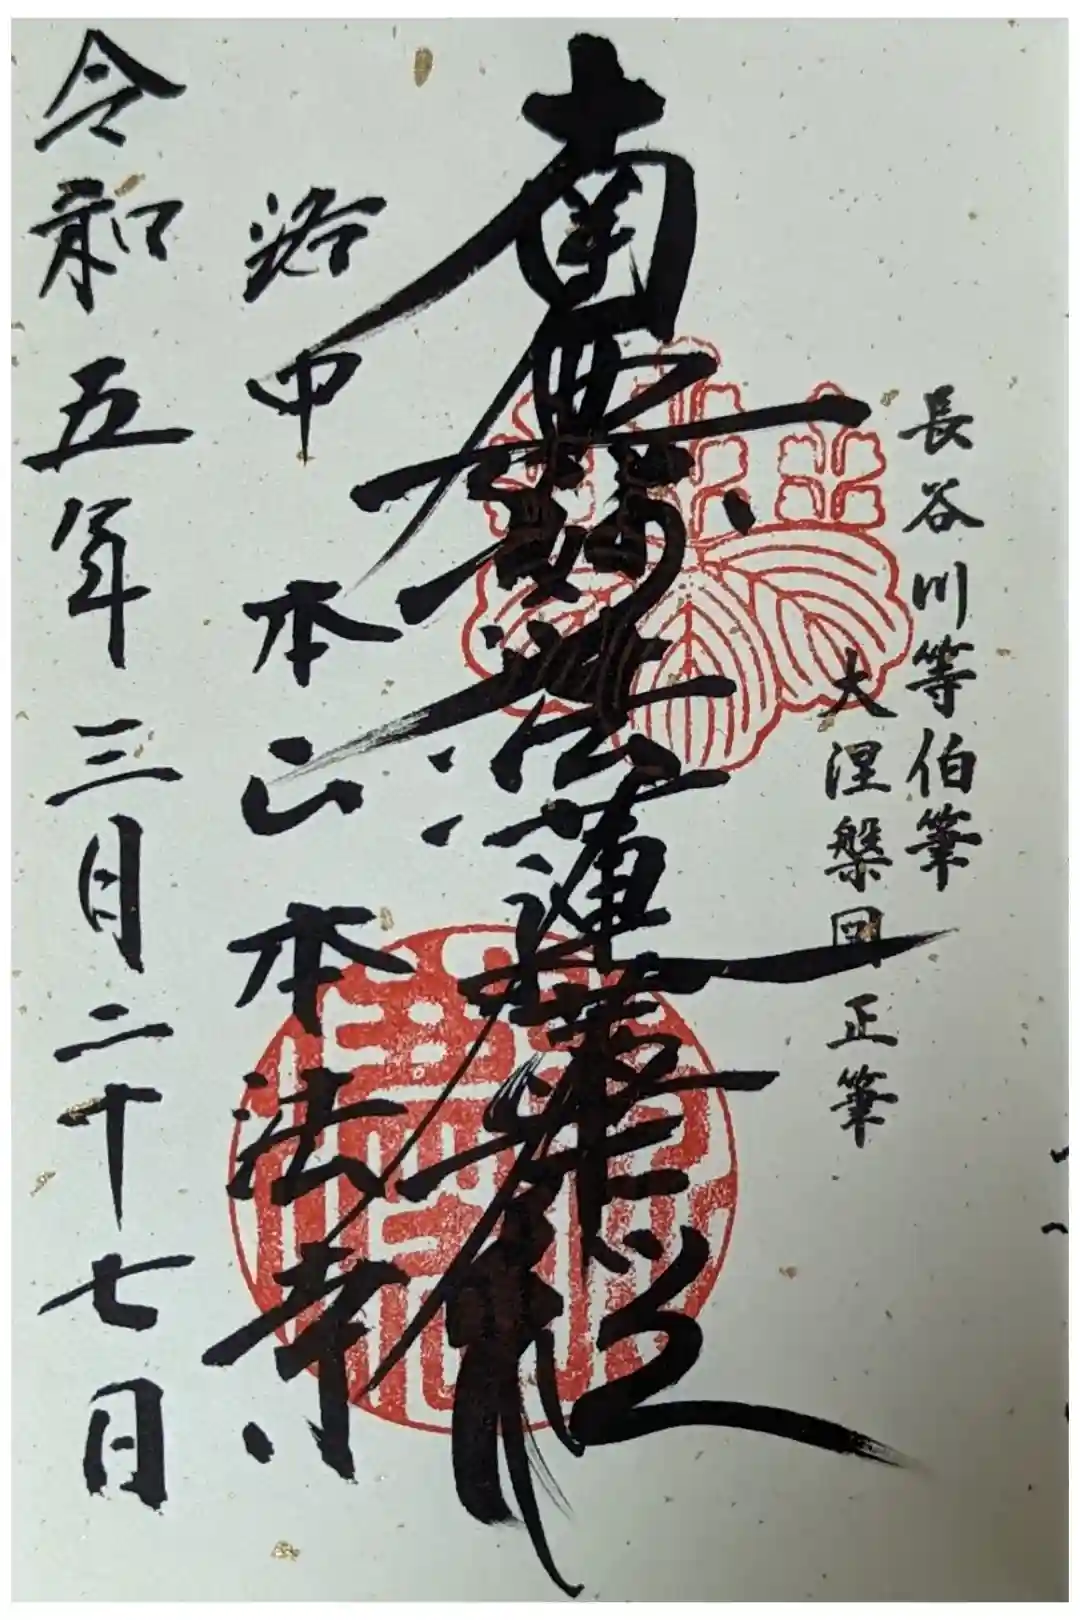 長谷川等伯筆
大涅槃図 正筆
南無妙法蓮華経
洛中 本山 本法寺
令和五年 三月二十七日